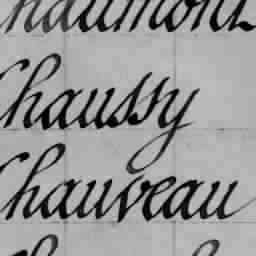 Chaumont
Chaussy
Chauveau